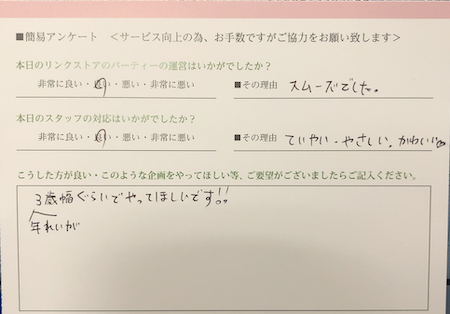 ■簡易アンケート ＜サービス向上の為、お手数ですがご協力をお願い致します＞
本日のリンクストアのパーティーの運営はいかがでしたか？
非常に良い・良い・悪い・非常に悪い ■その理由 スムーズでした。
本日のスタッフの対応はいかがでしたか？
非常に良い・良い・悪い・非常に悪い ■その理由 ていねい・やさしい。かわいい
こうした方が良い・このような企画をやってほしい等、ご要望がございましたらご記入ください。
3歳幅ぐらいでやってほしいです!!
年れいが